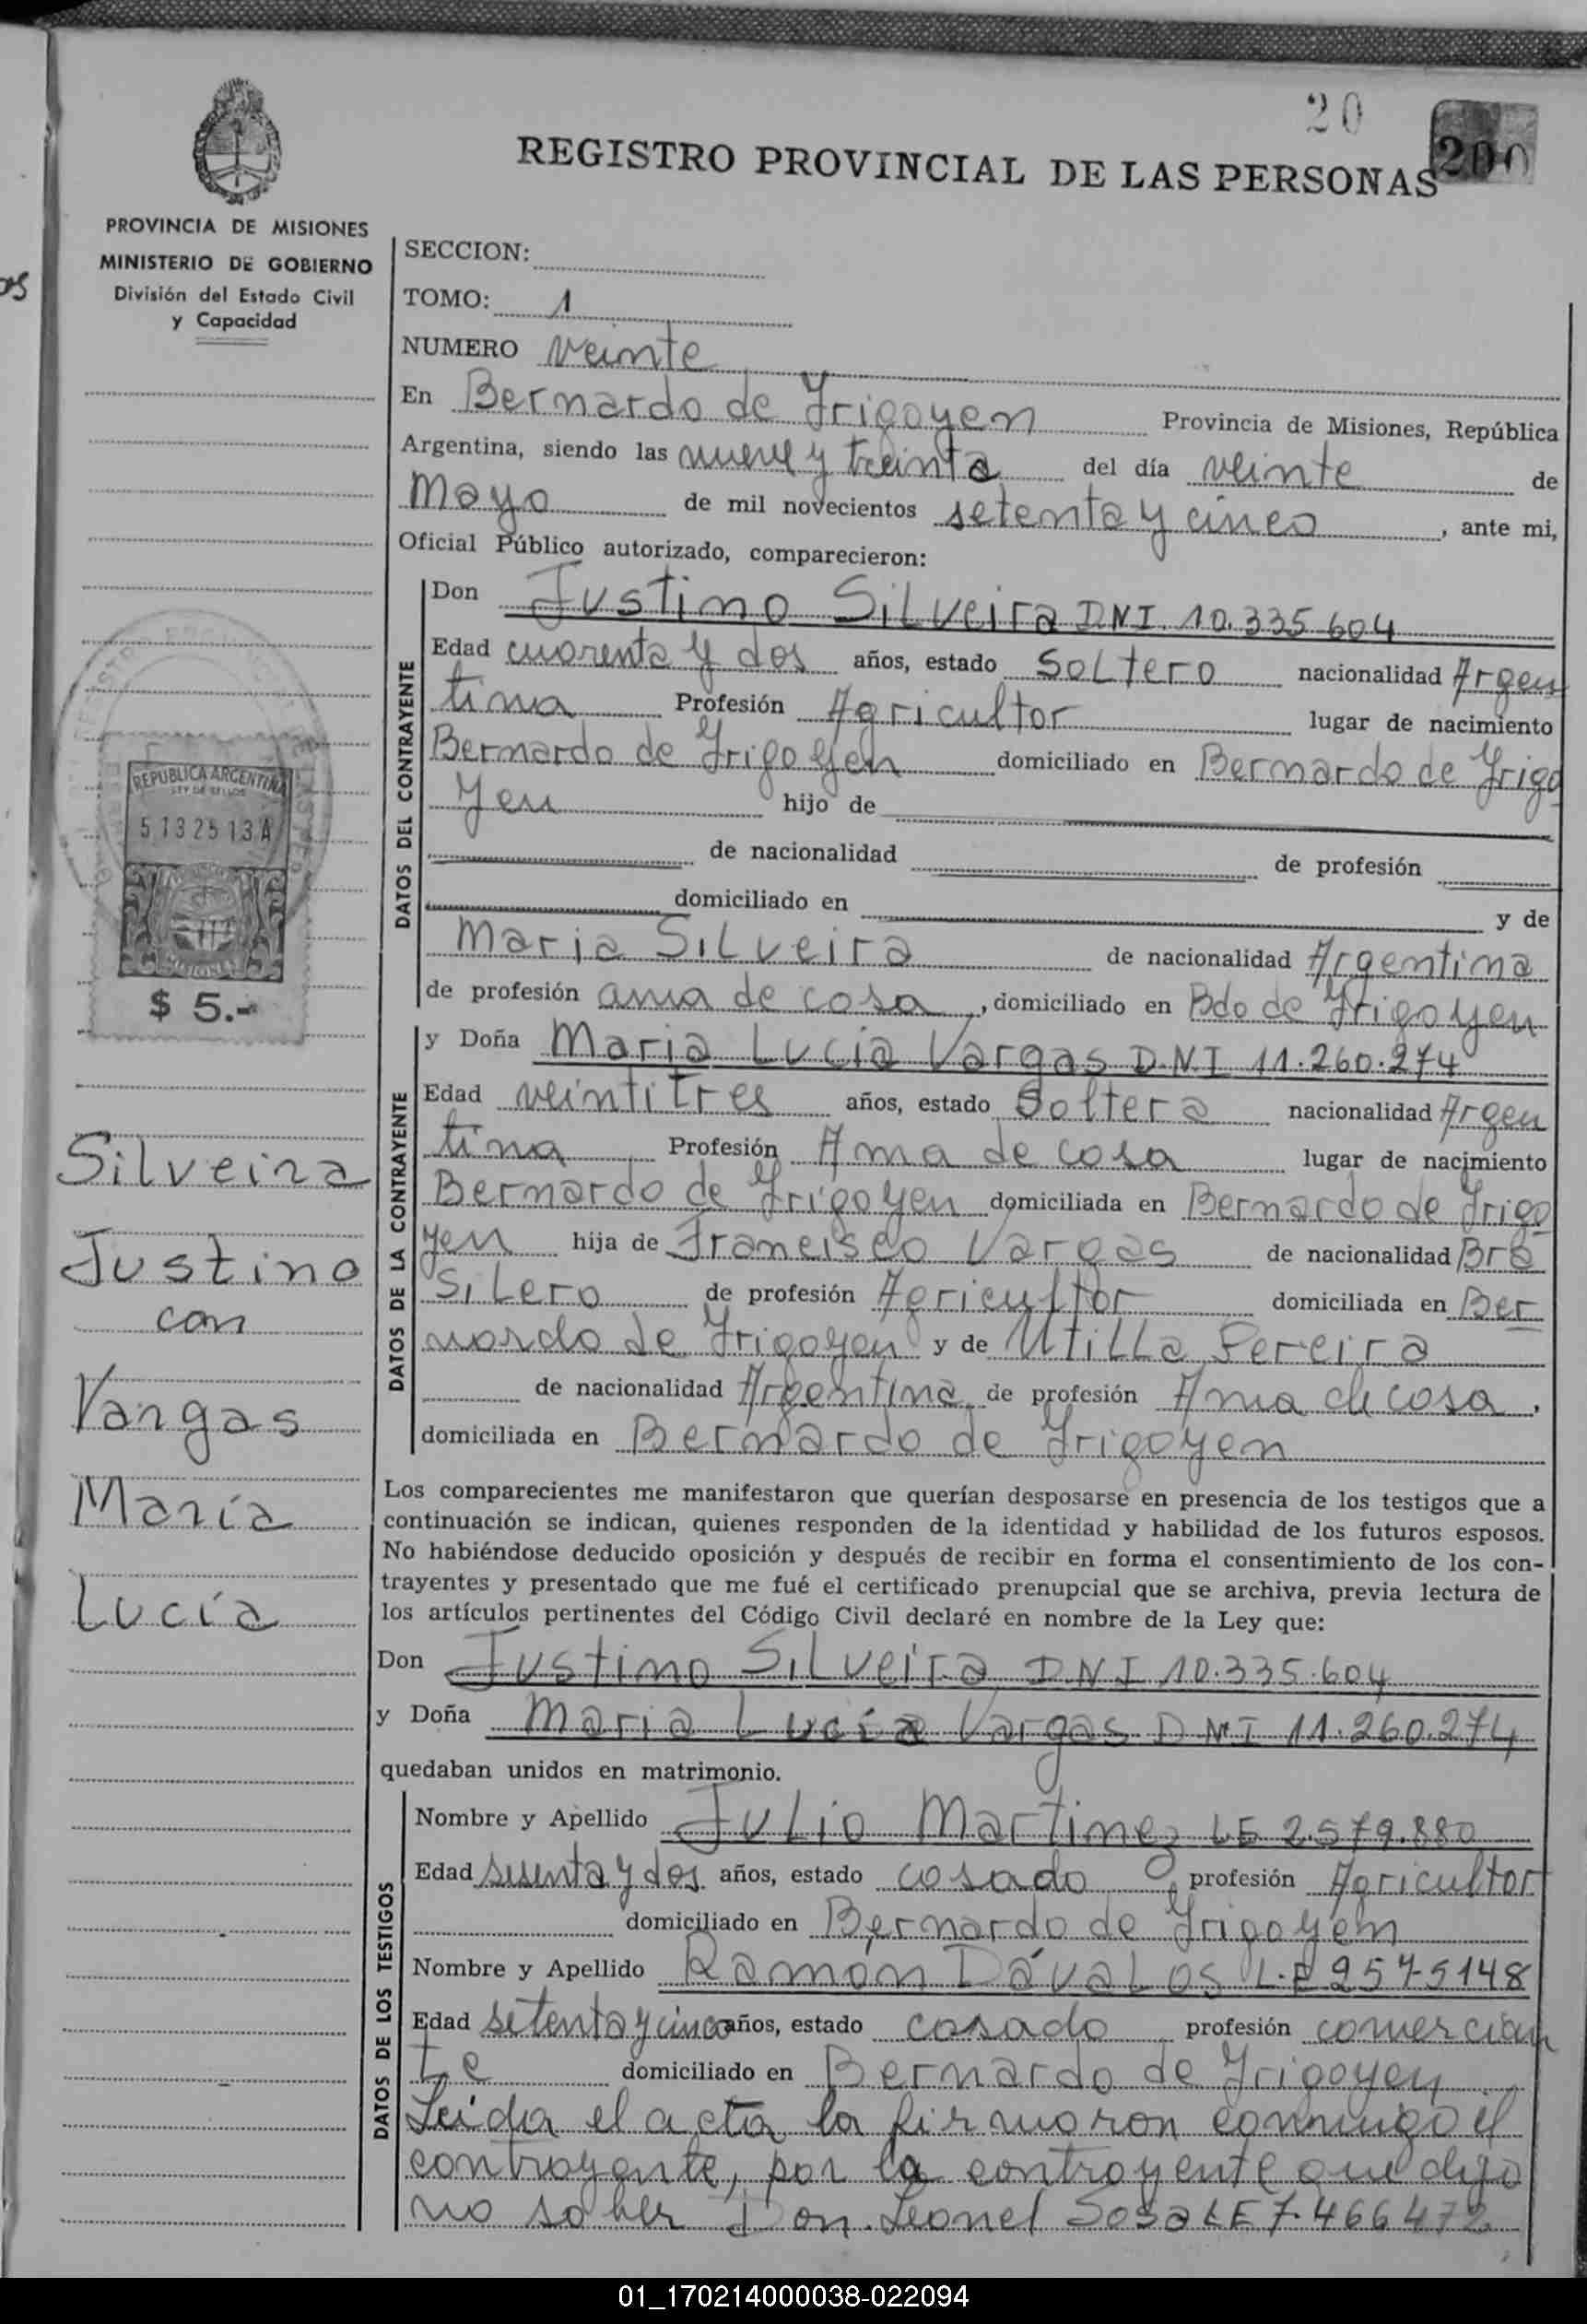 20
200
REGISTRO PROVINCIAL DE LAS PERSONAS
PROVINCIA DE MISIONES
MINISTERIO DE GOBIERNO
División del Estado Civil
y Capacidad
os
SECCION:
TOMO: 1
NUMERO veinte
En Bernardo de Irigoyen Provincia de Misiones, República
Argentina, siendo las nueve y treinta del día veinte de
Mayo de mil novecientos setenta y cinco, ante mi,
Oficial Público autorizado, comparecieron:
DATOS DEL CONTRAYENTE
Don Justino Silveira DNI. 10.335.604
Edad cuarenta y dos años, estado Soltero nacionalidad Argen
tina Profesión Agricultor lugar de nacimiento
Bernardo de Irigoyen domiciliado en Bernardo de Irigo
yen hijo de
de nacionalidad de profesión
domiciliado en y de
Maria Silveira de nacionalidad Argentina
de profesión ama de casa, domiciliado en Bdo de Irigoyen
REPUBLICA ARGENTINA
LEY DE SELLOS
513251 3 A
MISIONES
$ 5.-
DATOS DE LA CONTRAYENTE
y Doña Maria Lucia Vargas D.N.I 11.260.274
Edad veintitres años, estado Soltera nacionalidad Argen
tina Profesión Ama de casa lugar de nacimiento
Bernardo de Irigoyen domiciliada en Bernardo de Irigo
yen hija de Francisco Vargas de nacionalidad Bra
silero de profesión Agricultor domiciliada en Ber
nardo de Irigoyen y de Utilla Pereira
de nacionalidad Argentina de profesión Ama de casa,
domiciliada en Bernardo de Irigoyen
Silveira
Justino
con
Vargas
María
Lucía
Los comparecientes me manifestaron que querían desposarse en presencia de los testigos que a
continuación se indican, quienes responden de la identidad y habilidad de los futuros esposos.
No habiéndose deducido oposición y después de recibir en forma el consentimiento de los con-
trayentes y presentado que me fué el certificado prenupcial que se archiva, previa lectura de
los artículos pertinentes del Código Civil declaré en nombre de la Ley que:
Don Justino Silveira DNI 10.335.604
y Doña Maria Lucía Vargas DNI 11.260.274
quedaban unidos en matrimonio.
DATOS DE LOS TESTIGOS
Nombre y Apellido Julio Martinez LE 2.579.880
Edad sesenta y dos años, estado casado profesión Agricultor
domiciliado en Bernardo de Irigoyen
Nombre y Apellido Ramón Dávalos L.E 2575148
Edad setenta y cinco años, estado casado profesión comercian
te domiciliado en Bernardo de Irigoyen
Leida el acta la firmaron conmigo el
contrayente, por la contrayente que dijo
no saber Don Leonel Sosa LE 7.466472
01_170214000038-022094